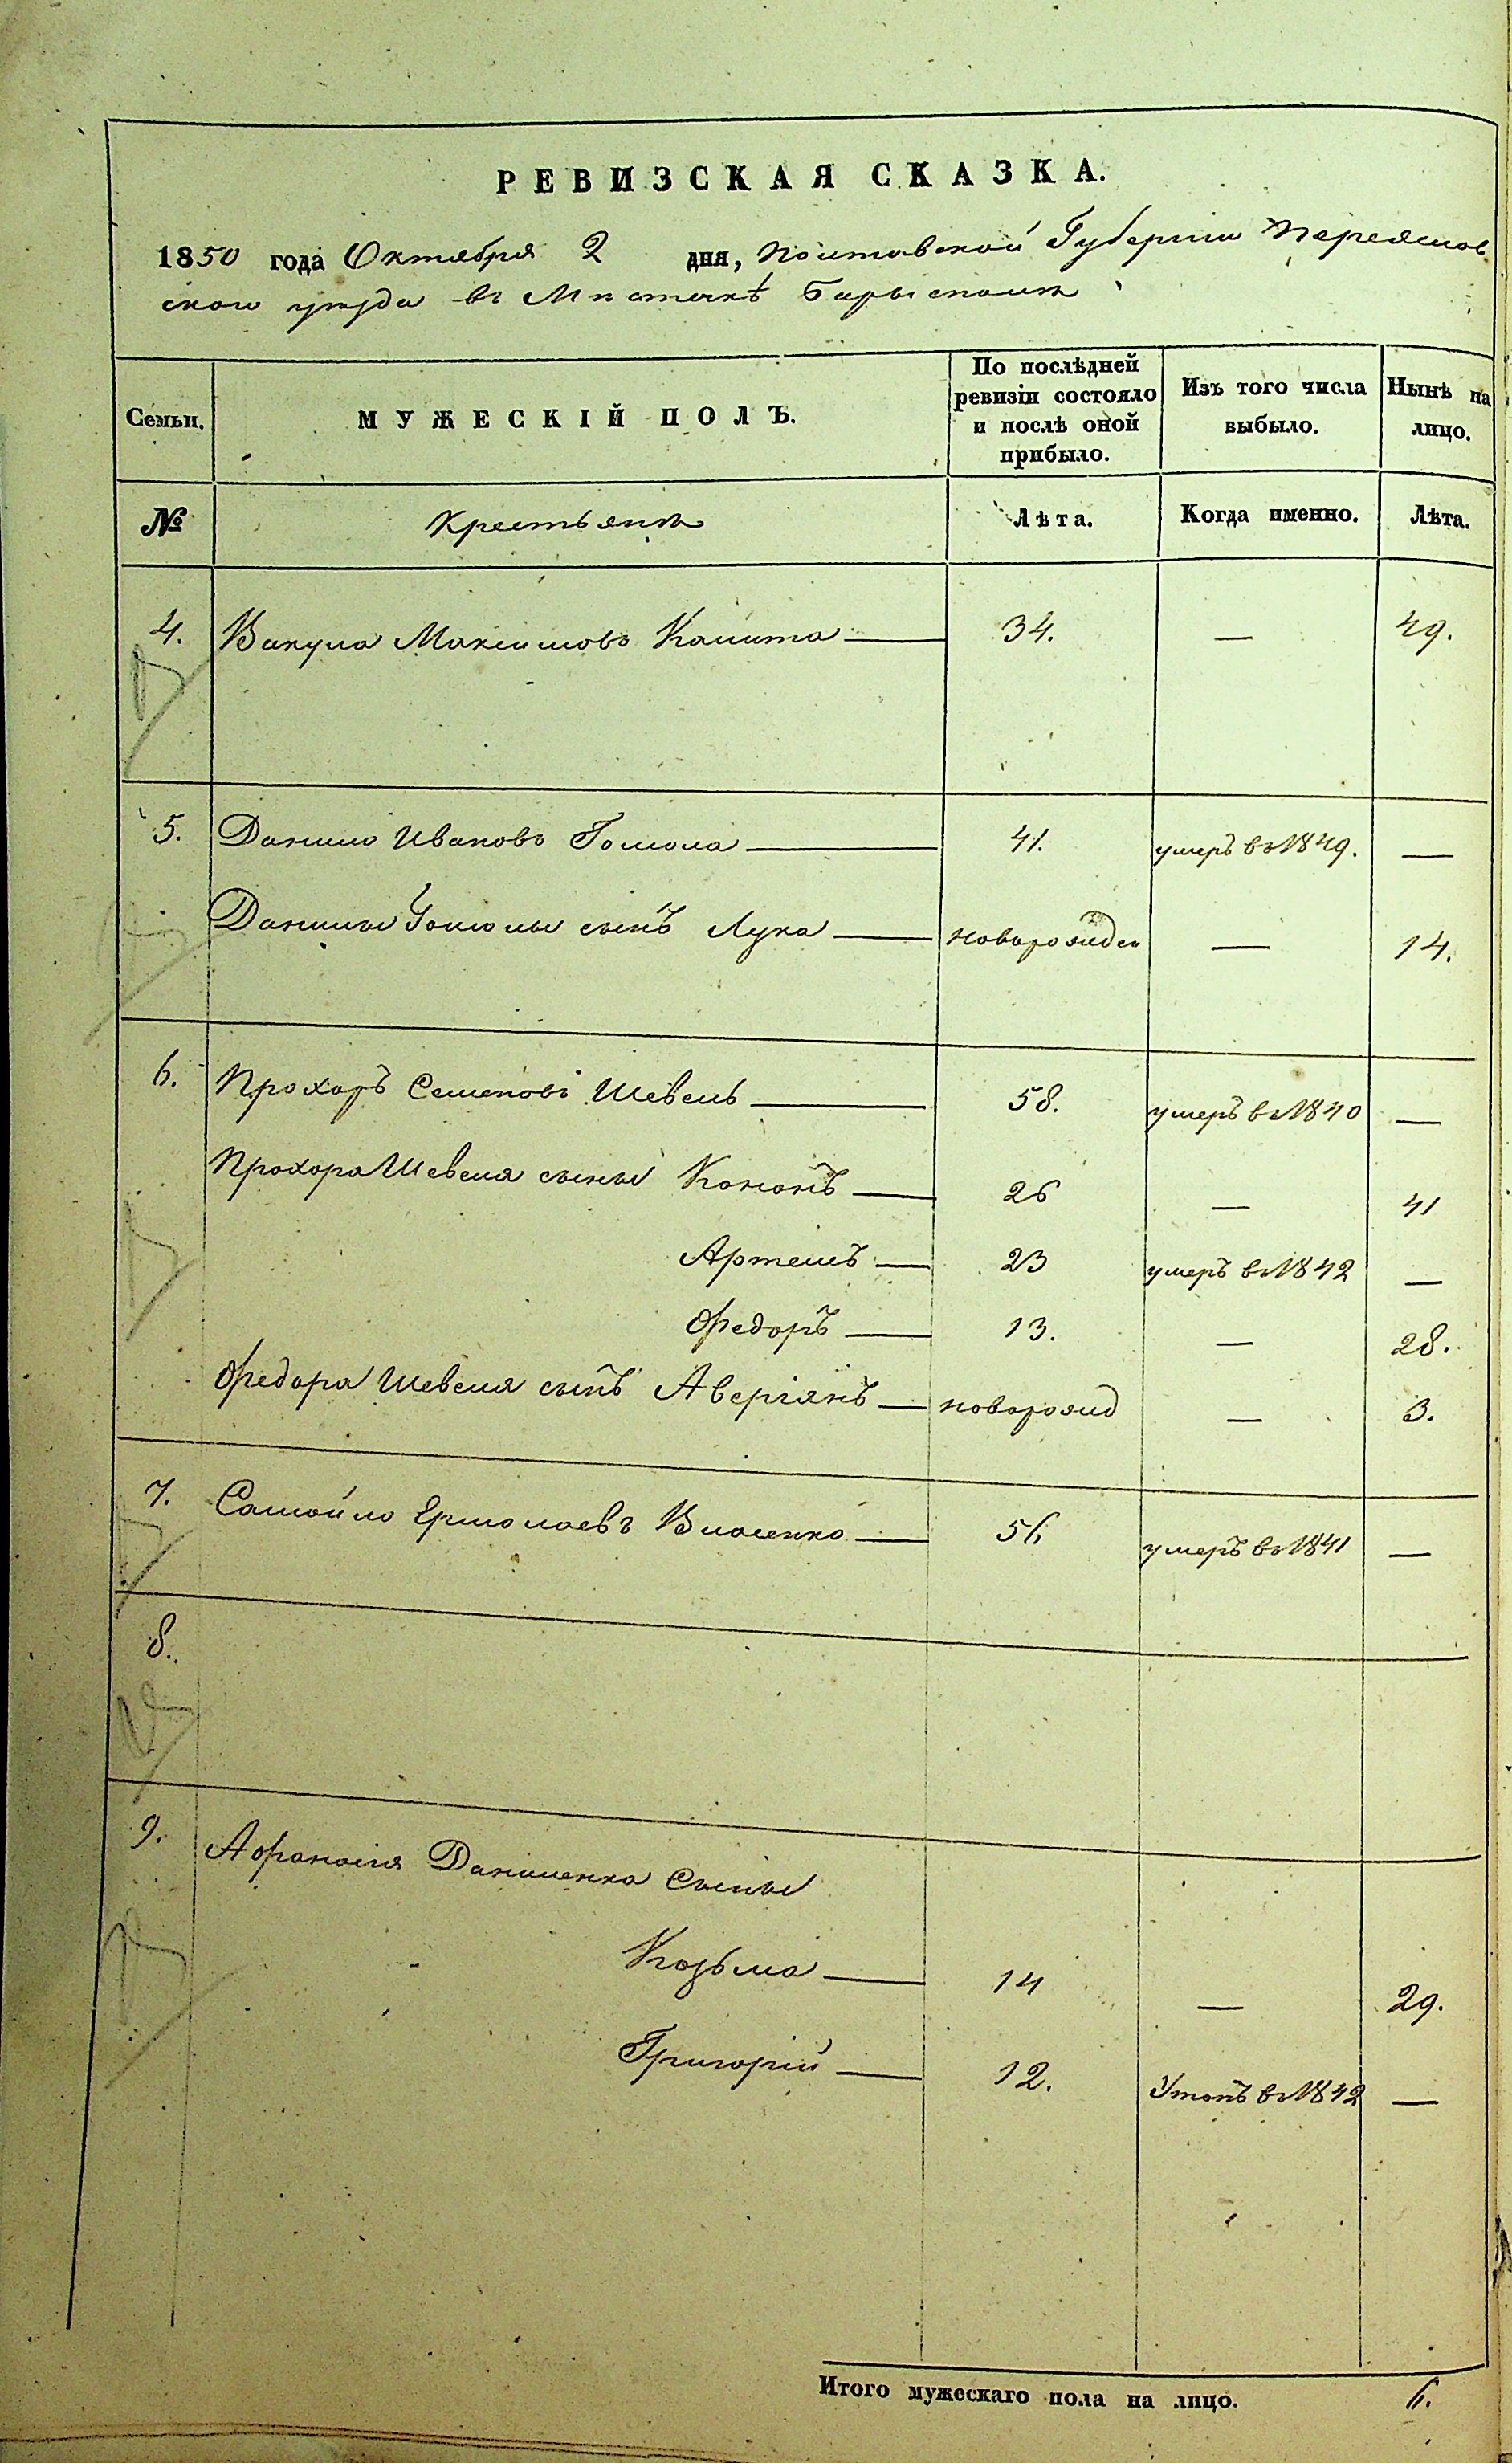 РЕВИЗСКАЯ СКАЗКА.
1850 года Октября 2 дня, Полтавской Губернии Переяслов
ского уезда въ Местечкѣ Барысполе
Семьи. МУЖЕСКІЙ ПОЛЪ. По послѣдней ревизіи состояло и послѣ оной прибыло. Изъ того числа выбыло. Нынѣ на лицо.
№ Крестьяне Лѣта. Когда именно. Лѣта.
4. Вакула Максимовъ Калита — 34. — 49.
5. Данило Ивановъ Гомола — 41. умеръ въ 1849. —
Данилы Гомолы сынъ Лука — новорожден — 14.
6. Прохоръ Семеновъ Шевель — 58. умеръ въ 1840 —
Прохора Шевеля сыны Кононъ — 26 — 41
Артемъ — 23 умеръ въ 1842 —
Федоръ — 13. — 28.
Федора Шевеля сынъ Аверіянъ — новорожд — 3.
7. Самойло Ермолаевъ Власенко — 56 умеръ въ 1841 —
8.
9. Афанасія Даниленка Сыны
Козьма — 14 — 29.
Григорій — 12. Утопъ въ 1842 —
Итого мужескаго пола на лицо. 6.